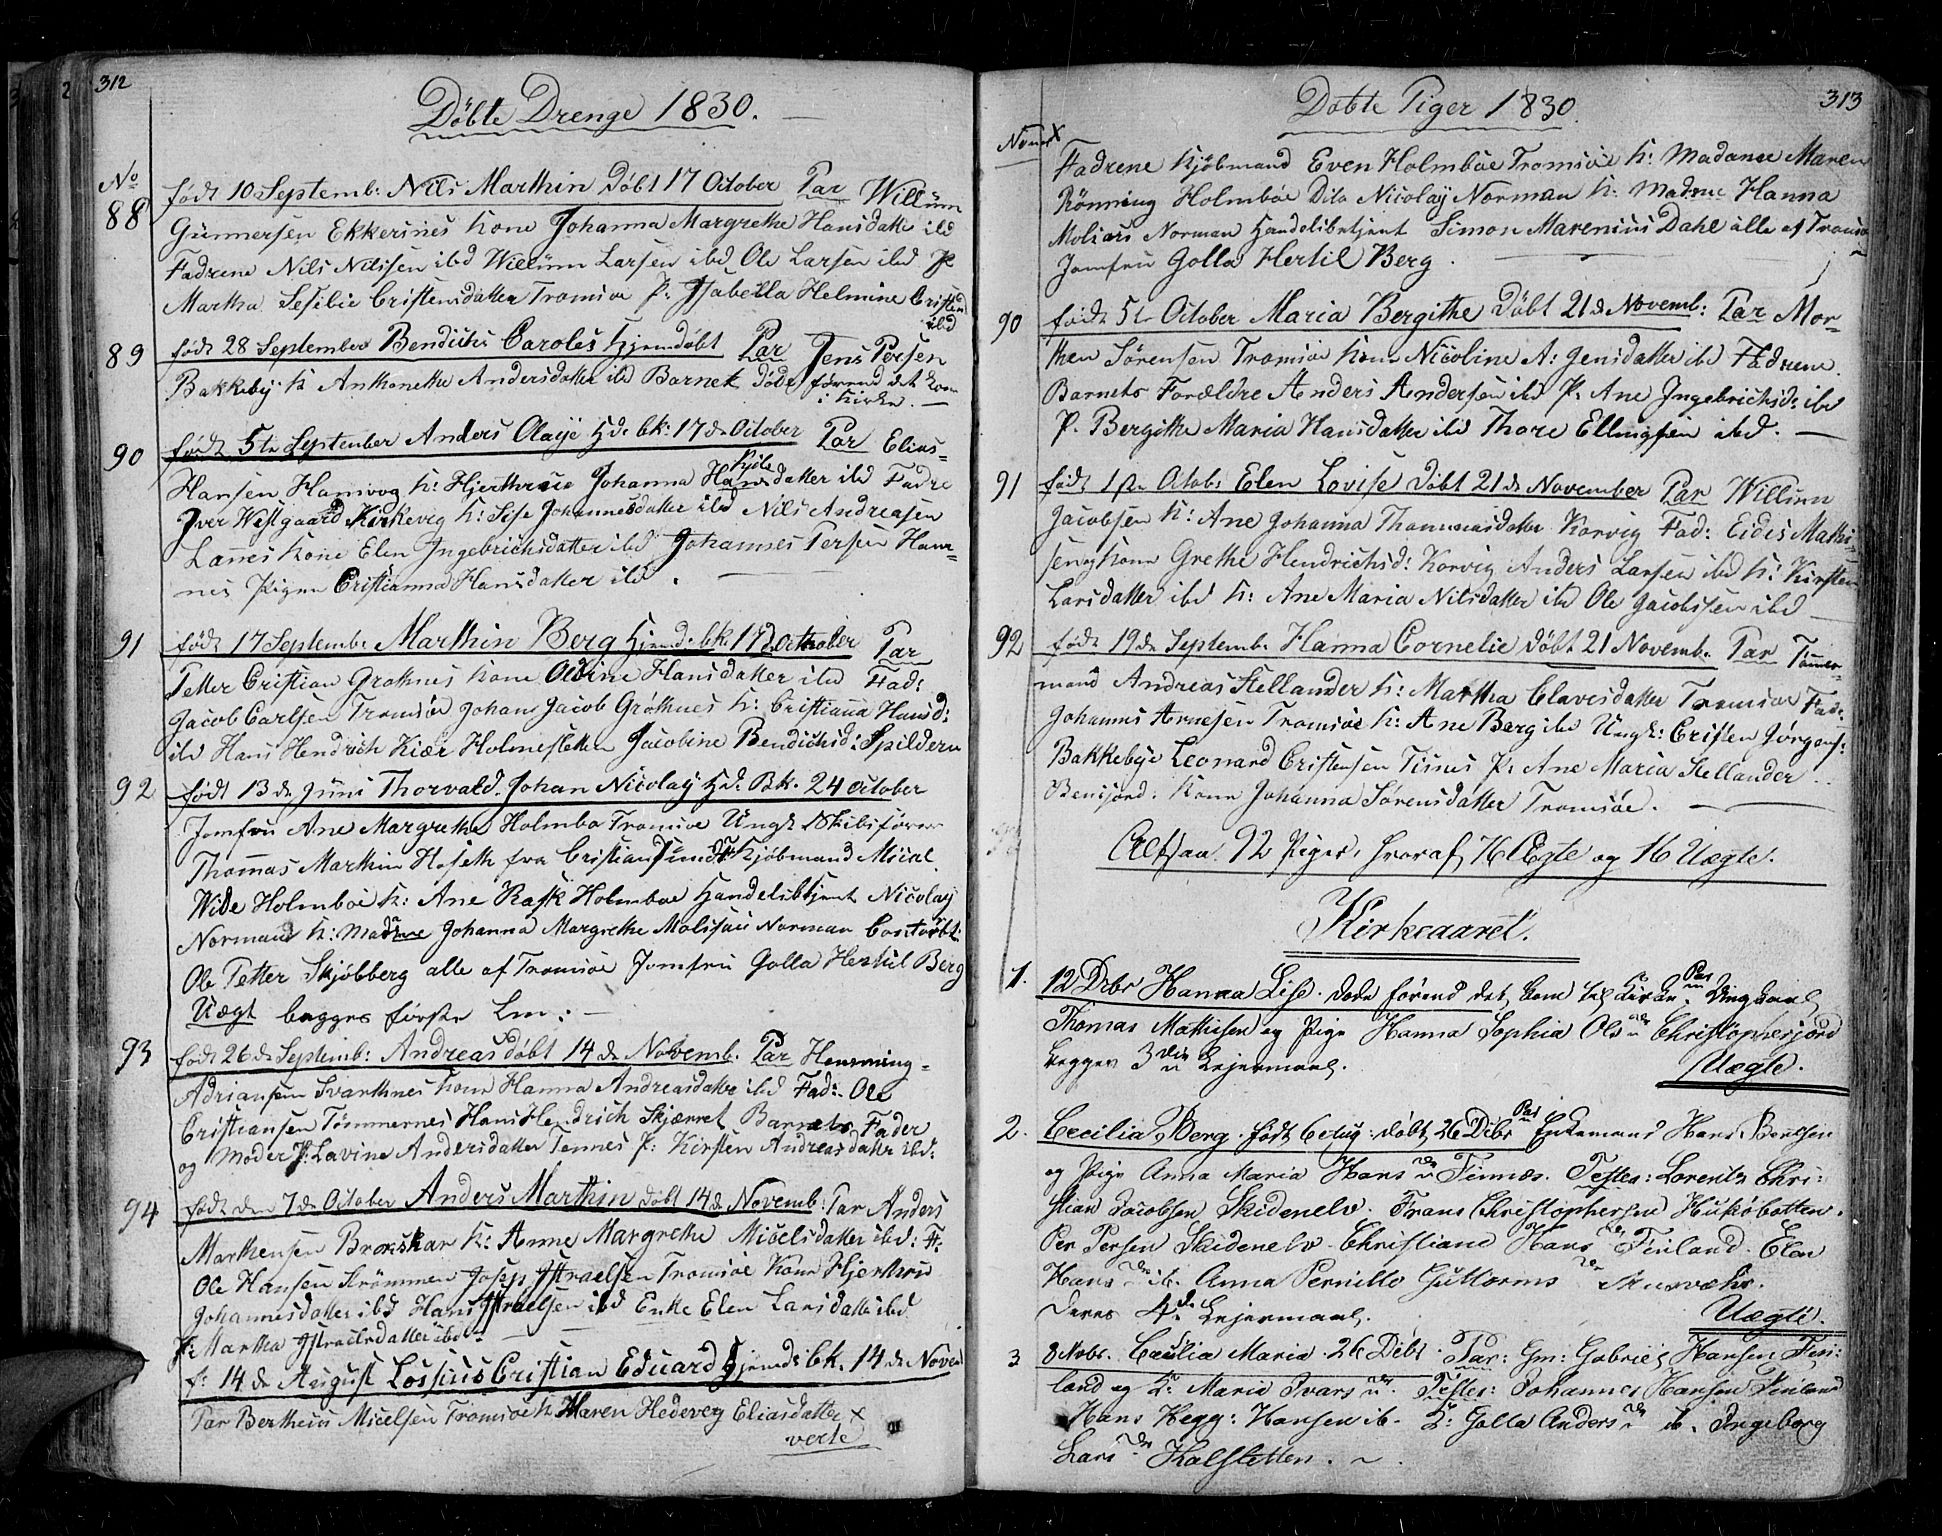 312
Döbte Drenge 1830.
No
88 født 10 Septemb: Nils Marthin Döbt 17 October Par Willum
Gunnersen Ekkerines Kone Johanna Margrethe Hansdatter ibd
Fadrene Nils Nilssen ibd Willum Larsen ibd Ole Larsen ibd P
Martha Sesilie Cristensdatter Tromsöe P: Isabella Helmine Cristend
ibd
89 født 28 September Bendichs Caroles hjemdøbt Par Jens Persen
Bakkebÿ K Anthonette Andersdatter ibd Barnet döde förend det kom
i Kirke.
90 født 5te September Anders Olaÿe Hd: bk: 17de October Par Elias
Hansen Hamvog K: Hjerthrue Johanna Hansdatter ibd Fadre
Iver Westgaard Kirkevig K: Sise Johannesdatter ibd Nils Andreasen
Lanes Kone Elen Ingebrichsdatter ibd Johannes Persen Ham=
nes Pigen Cristianna Hansdatter ibd.
91 født 17 Septemb: Marthin Berg Hjemd: bk: 17de October Par
Petter Cristian Grøthnes Kone Oldrine Hansdatter ibd Fad:
Jacob Carlsen Tromsöe Johan Jacob Gröthnes K: Cristianna Hansd:
ibd Hans Hendrich Kiær Holmesletten Jacobine Bendichsd: Spildern
92 født 13de Juni Thorvald Johan Nicolaÿ Hd: Bk: 24 october
Jomfru Ane Margrethe Holmbo Tromsöe Ungk Skibsförer
Thommas Marthin Hoseth fra Cristiansund Kjöbmand Micel
Wide Holmboe K: Ane Rask Holmboe Handelsbtjent Nicolaÿ
Normand K: Madme Johanna Margrethe Molisous Norman Contorbt:
Ole Petter Skjöbberg alle af Tromsöe Jomfru Golla Hertil Berg
Uægt begges förste Lm: —
93 født 26de Septemb: Andreas döbt 14de Novemb. Par Henning
Adriansen Svarthnes Kone Hanna Andreasdatter ibd Fad: Ole
Cristiansen Tömmernes Hans Hendrich Skjærret Barnets Fader
og Moder P: Lavine Andersdatter Tennes P: Kirsten Andreasdatter ibd:
94 født den 7de October Anders Marthin döbt 14de Novemb: Par Anders
Marthensen Brenskar K: Anne Margrethe Micelsdatter ibd: F.
Ole Hansen Strömmen Josep Israelsen Tromsöe Kone Hjerthru
Johannesdatter ibd Hans Israelsen ibd Enke Elen Larsdatter ibd
P: Martha Israelsdatter ibd: —
f: 14de August Lossius Cristian Eduard Hjemd: bk. 14de Novem
Par Bertheus Micelsen Tromsöe K Maren Hedeveg Eliasdatter x
verte
313
Döbte Piger 1830.
Fadrene Kjöbmand Even Holmboe Tromsöe K: Madame Maren
Rönning Holmboe Dito Nicolaÿ Norman K: Madme Hanna
Molsars Norman Handelsbetjent Simon Marenius Dahl alle af Tromsö
Jomfru Golla Hertil Berg.
90 født 5te October Maria Bergithe Döbt 21de Novemb: Par Mor=
then Sörensen Tromsöe Kone Nicoline A: Jensdatter ibd Fadrene.
Barnets Forældre Anders Andersen ibd P: Ane Ingebrichsd: ibd
P. Bergithe Maria Hansdatter ibd Thore Ellingsen ibd. —
91 født 1ste Octob: Elen Lovise Döbt 21de November Par Willum
Jacobsen K: Ane Johanna Thommasdatter Korvig Fad: Eidis Mathi=
seny Kone Grethe Hendrichsd: Korvig Anders Larsen ibd K: Kirsten
Larsdatter ibd K: Ane Maria Nilsdatter ibd Ole Jacobssen ibd
92 født 19de Septemb. Hanna Cornelie Döbt 21 Novemb. Par Tömmer=
mand Andreas Stellander K: Martha Clavesdatter Tromsöe Fad:
Johannes Arnesen Tromsöe K: Ane Berg ibd Ungk: Cristen Jörgens:
Bakkebye Leonard Cristensen Tisnes P: Ane Maria Stellander
Bensjord. Kone Johanna Sörensdatter Tromsöe. —
Altsaa 92 Piger, hvoraf 76 Ægte og 16 Uægte.
Kirkeaaret.
1. 12 Dcbr Hanna Lise. döde förend det kom til Kirke. Par Ungkarl
Thomas Mathisen og Pige Hanna Sophia Ols dr Christophersjord
begges 3die Lejermaal. Uægte.
2. Cecilia Berg. født 6 Aug: döbt 26 Dcbr Par Enkemand Hans Bentsen
og Pige Anna Maria Hans dr Finnæs. Testes: Lorents Chri=
stian Jacobsen Skidenelv. Frans Christophersen Huköbotten.
Per Persen Skidenelv. Christiane Hans dr Finland. Elen
Hans dr ib. Anna Pernille Guttorms dr
deres 4de Lejermaal. Uægte.
3 8 Nobr. Cecilia Maria. 26 Dcbr. Par: Gm: Gabriel Hansen Fin=
land og K: Maria Ivars dr. Testes: Johannes Hansen Finland
Hans Hegg: Hansen ib. K: Golla Anders dr ib. Ingeborg
Lars dr Kalsletten.